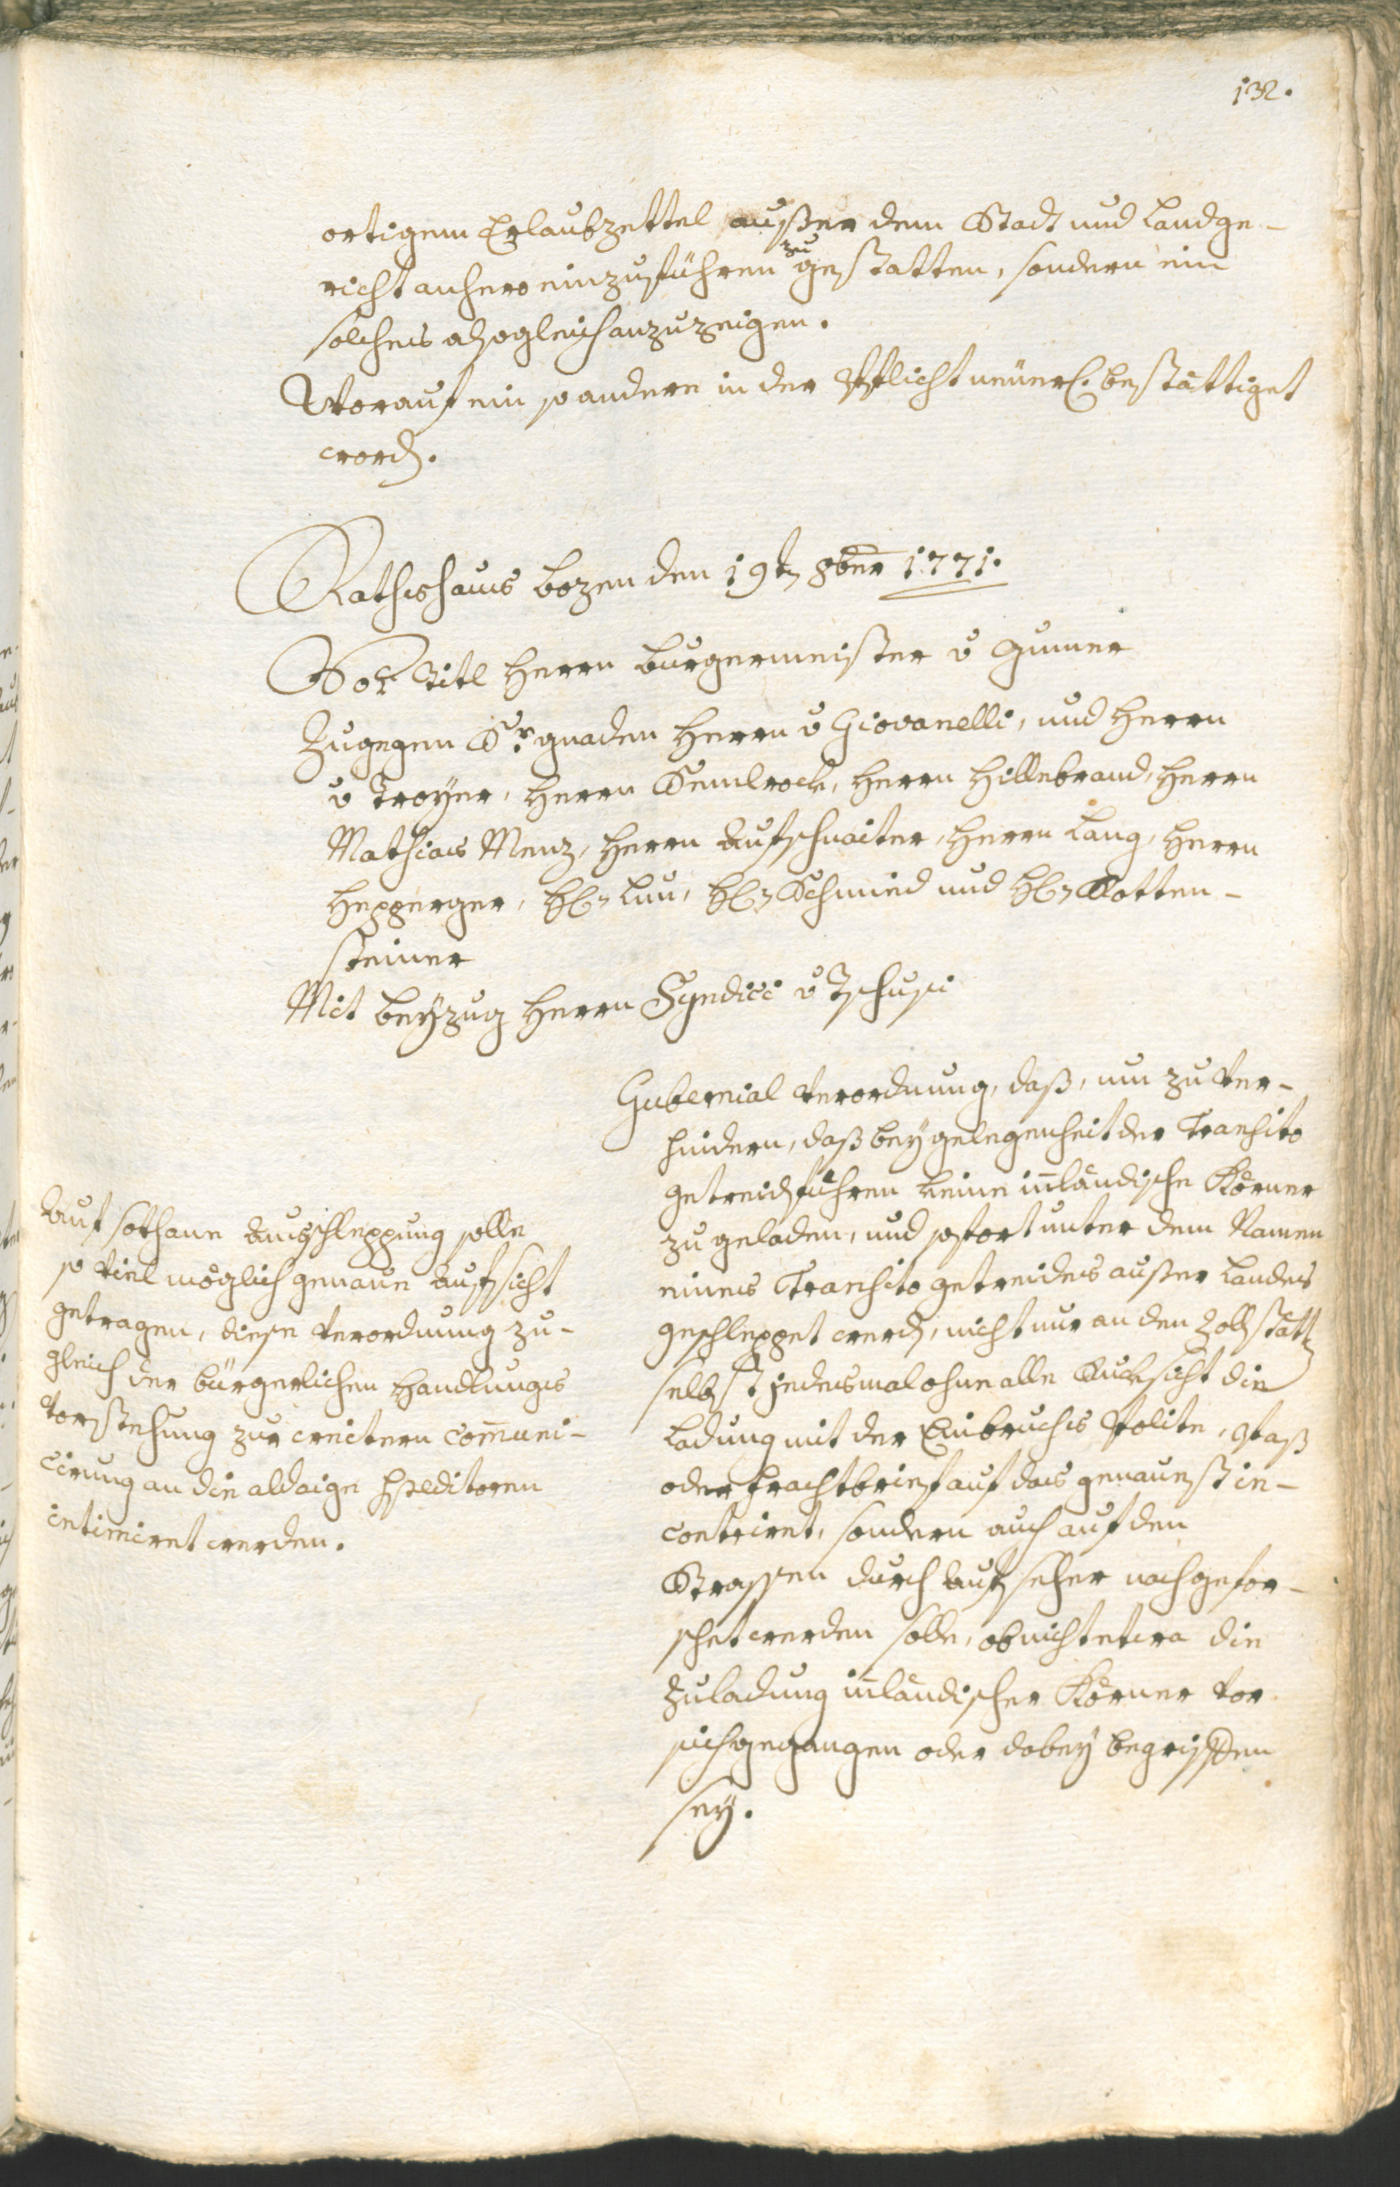 132.
ortigem Erlaubzettel außer dem Stadt und Landge-
richt anhero einzuführen zu gestatten, sondern ein
solches alsogleich anzuzeigen.
Worauf ein so andere in der Pflicht neüerl. bestättiget
word.
Rathshaus Bozen den 19t 8ber 1771.
Vor Titl Herrn Burgermeister v Gumer
Zugegen Sr. gnaden Herrn v Giovanelli, und Herrn
v Troÿer, Herrn Semlrock, Herrn Hillebrand, Herrn
Mathias Menz, Herrn Aufschnaiter, Herrn Lang, Herrn
Hepperger, H Lun, H Schmied und H Rotten-
steiner
Mit beÿzug Herrn Syndici v Tschusi
Gubernial Verordnung, daß, um zu ver-
hindern, daß beÿ gelegenheit der Transito
getreidführen keine inländische Körner
zu geladen, und sofort unter dem Namen
eines Transito getreides außer Landes
geschleppet werd, nicht nur an den Zollstätt
selbst jedesmal ohne alle Rucksicht die
Ladung mit der Einbruchs Polite, Paß
oder Frachtbrief auf das genaueste in-
contriret, sondern auch auf den
Strassen durch Aufseher nachgefor-
schet werden solle, ob nicht etwa die
Zuladung inländischer Körner vor
sich gegangen oder dabeÿ begriffen
seÿ.
Auf sothane Ausschleppung solle
so viel möglich genaue Aufsicht
getragen, diese Verordnung zu-
gleich der bürgerlichen Handlungs
Vorstehung zur weitern communi-
cirung an die aldaige Speditorn
intimiret werden.